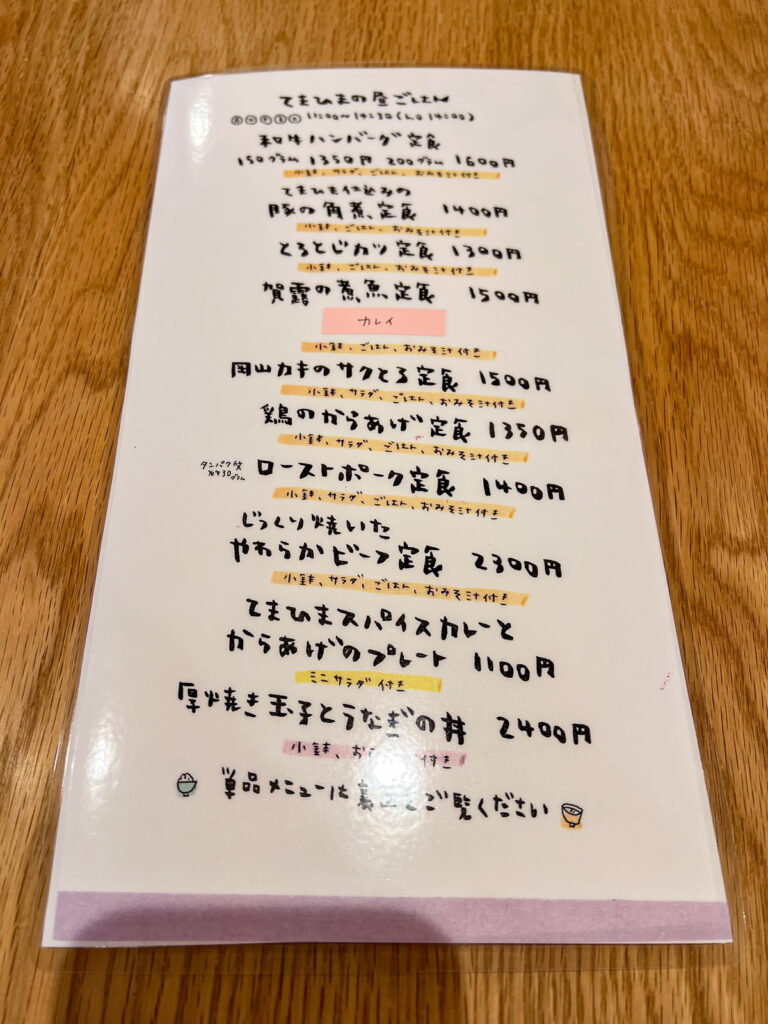 てまひまの昼ごはん
11:00〜14:30(L.O 14:00)
和牛ハンバーグ定食
150グラム 1350円 200グラム 1600円
小鉢、サラダ、ごはん、おみそ汁付き
てまひま仕込みの
豚の角煮定食 1400円
小鉢、ごはん、おみそ汁付き
とろとじカツ定食 1300円
小鉢、ごはん、おみそ汁付き
賀露の煮魚定食 1500円
カレイ
小鉢、ごはん、おみそ汁付き
岡山カキのサクとろ定食 1500円
小鉢、サラダ、ごはん、おみそ汁付き
鶏のからあげ定食 1350円
小鉢、サラダ、ごはん、おみそ汁付き
タンパク質
30グラム
ローストポーク定食 1400円
小鉢、サラダ、ごはん、おみそ汁付き
じっくり焼いた
やわらかビーフ定食 2300円
小鉢、サラダ、ごはん、おみそ汁付き
てまひまスパイスカレーと
からあげのプレート 1100円
ミニサラダ付き
厚焼き玉子とうなぎの丼 2400円
小鉢、お 付き
単品メニューは裏 ご覧ください